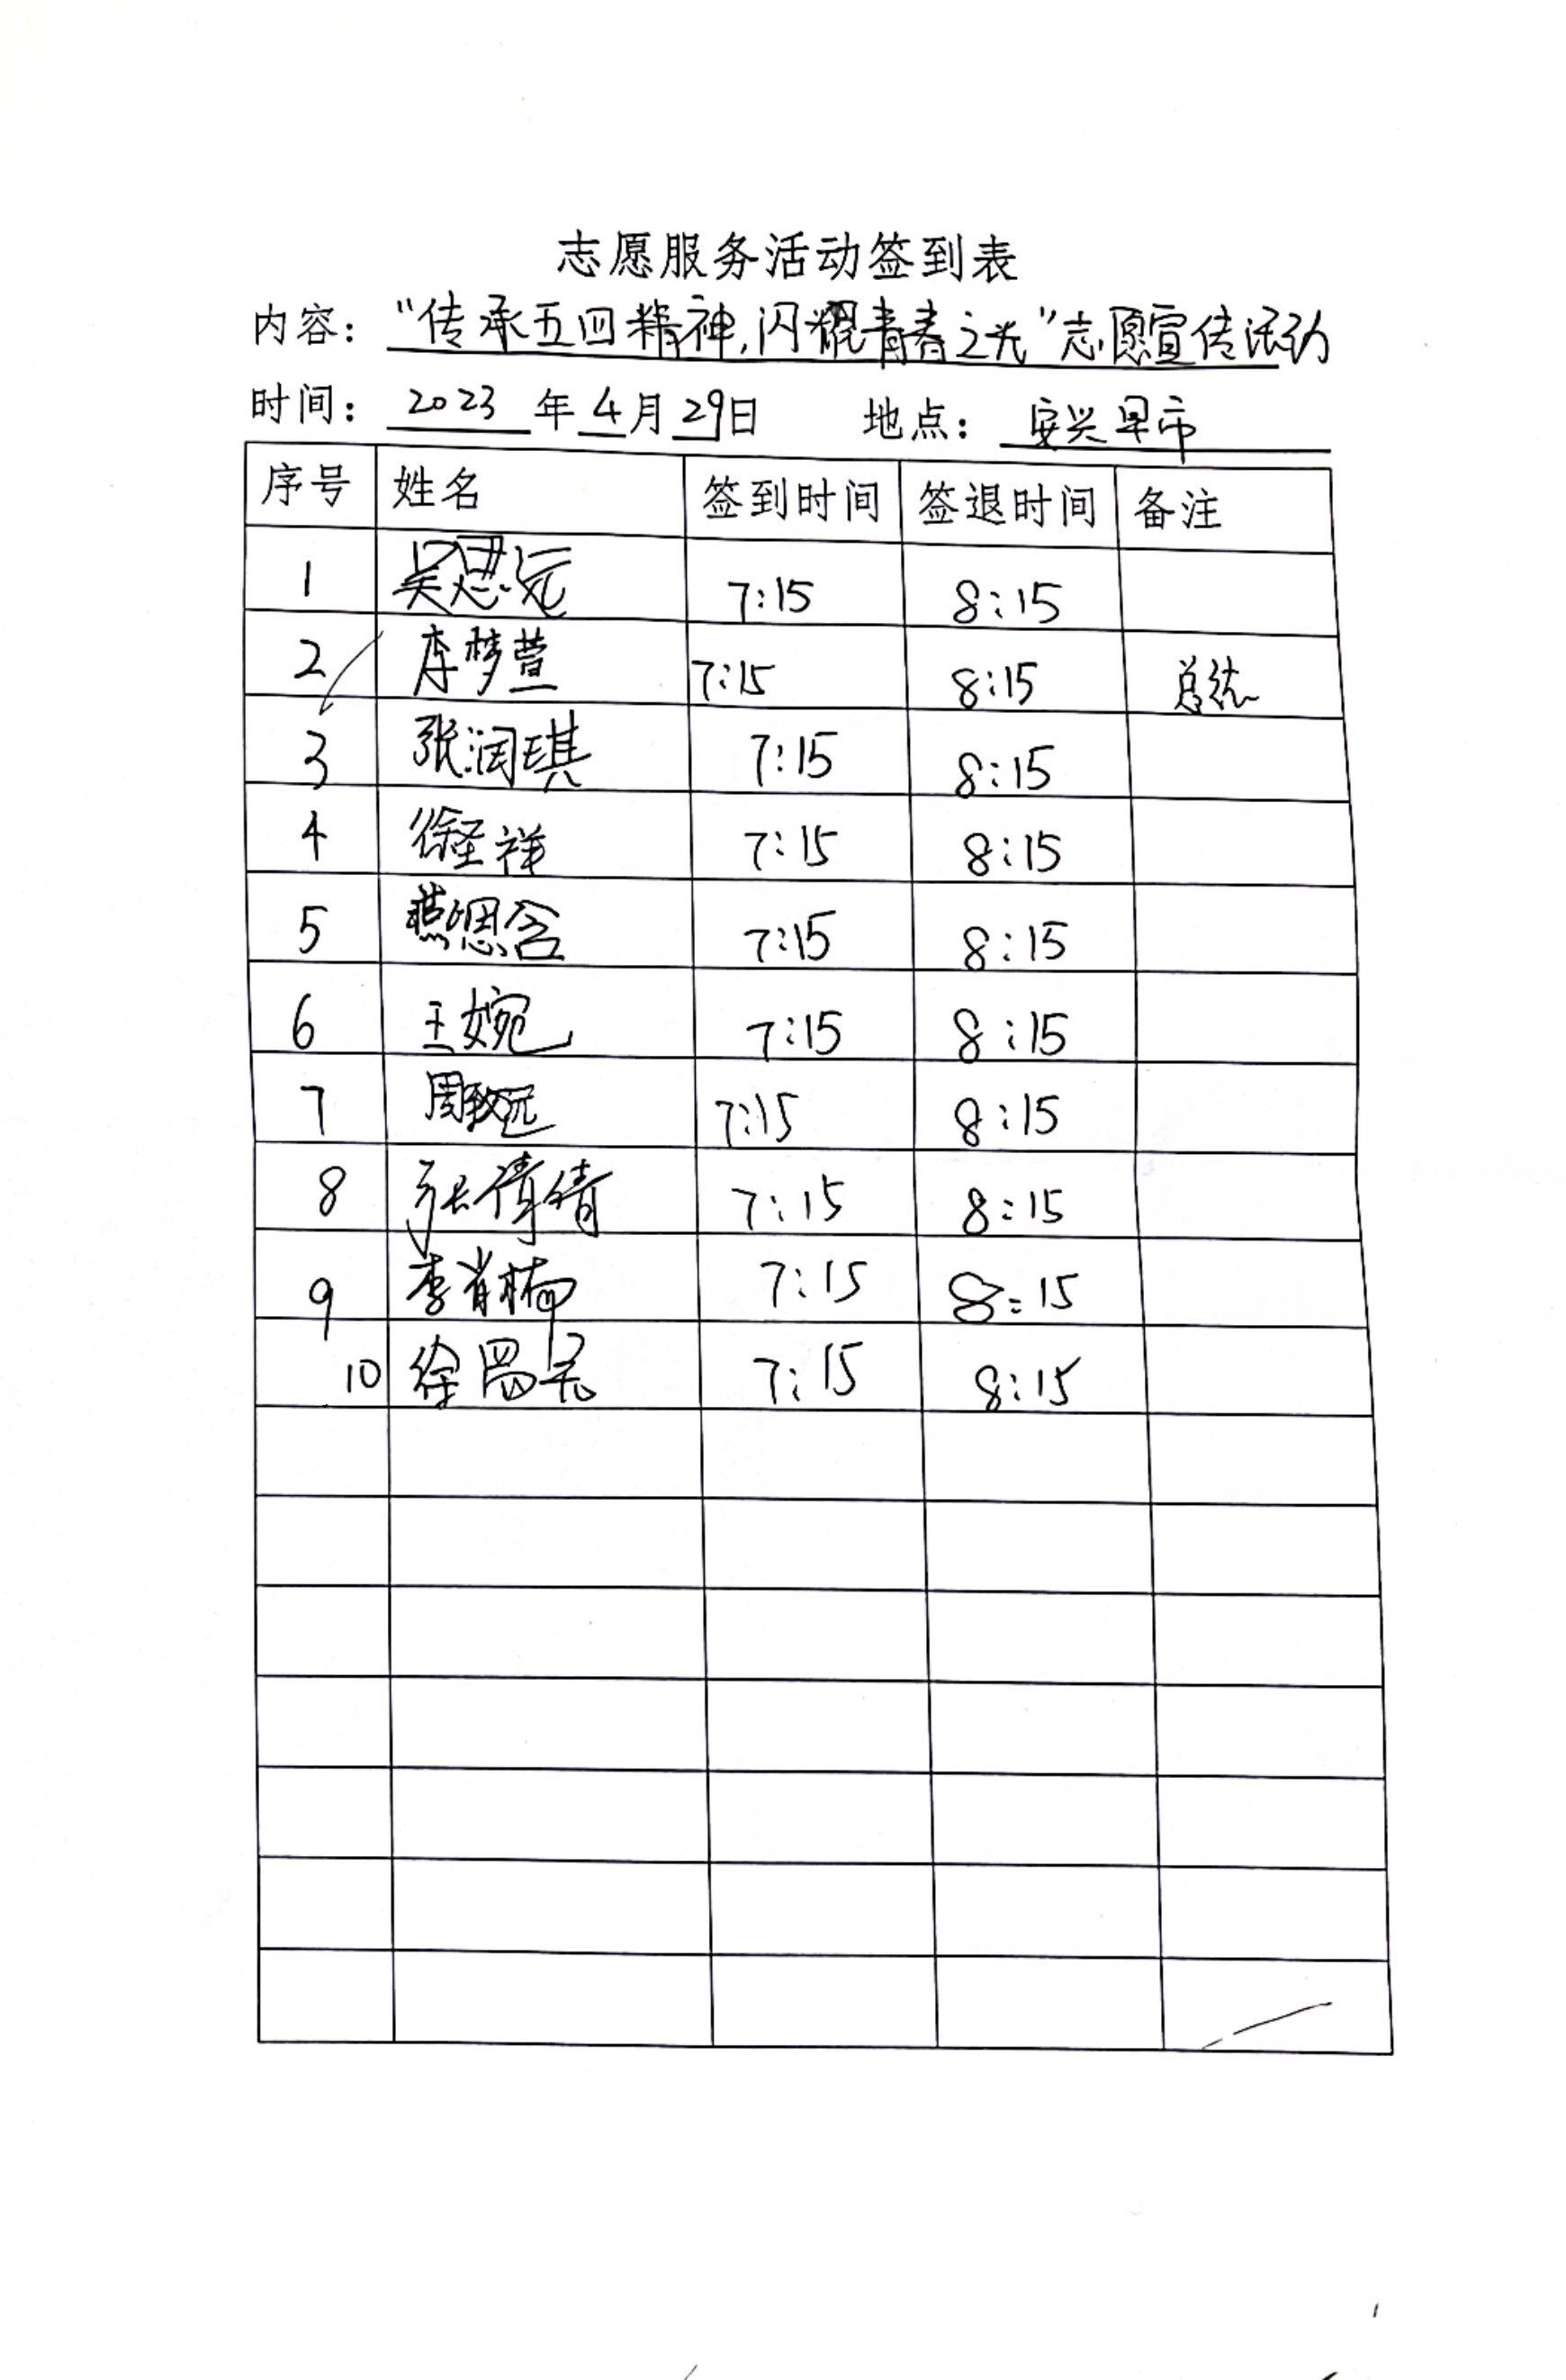 志愿服务活动签到表
内容：“传承五四精神,闪耀青春之光”志愿宣传活动
时间：2023年4月29日 地点：安兴早市
序号 姓名 签到时间 签退时间 备注
1 吴思远 7:15 8:15
2 李梦萱 7:15 8:15 总统
3 张润琪 7:15 8:15
4 徐圣祥 7:15 8:15
5 燕恩含 7:15 8:15
6 王婉 7:15 8:15
7 周致远 7:15 8:15
8 张倩倩 7:15 8:15
9 李肖楠 7:15 8:15
10 徐 7:15 8:15